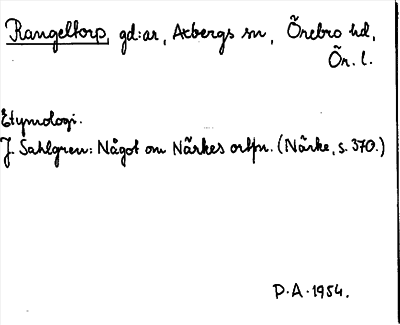 Rangeltorp, gd:ar, Axbergs sn, Örebro hd,
Ör. l.
Etymologi.
J. Sahlgren: Något om Närkes ortpn. (Närke, s. 370.)
P.A. 1954.